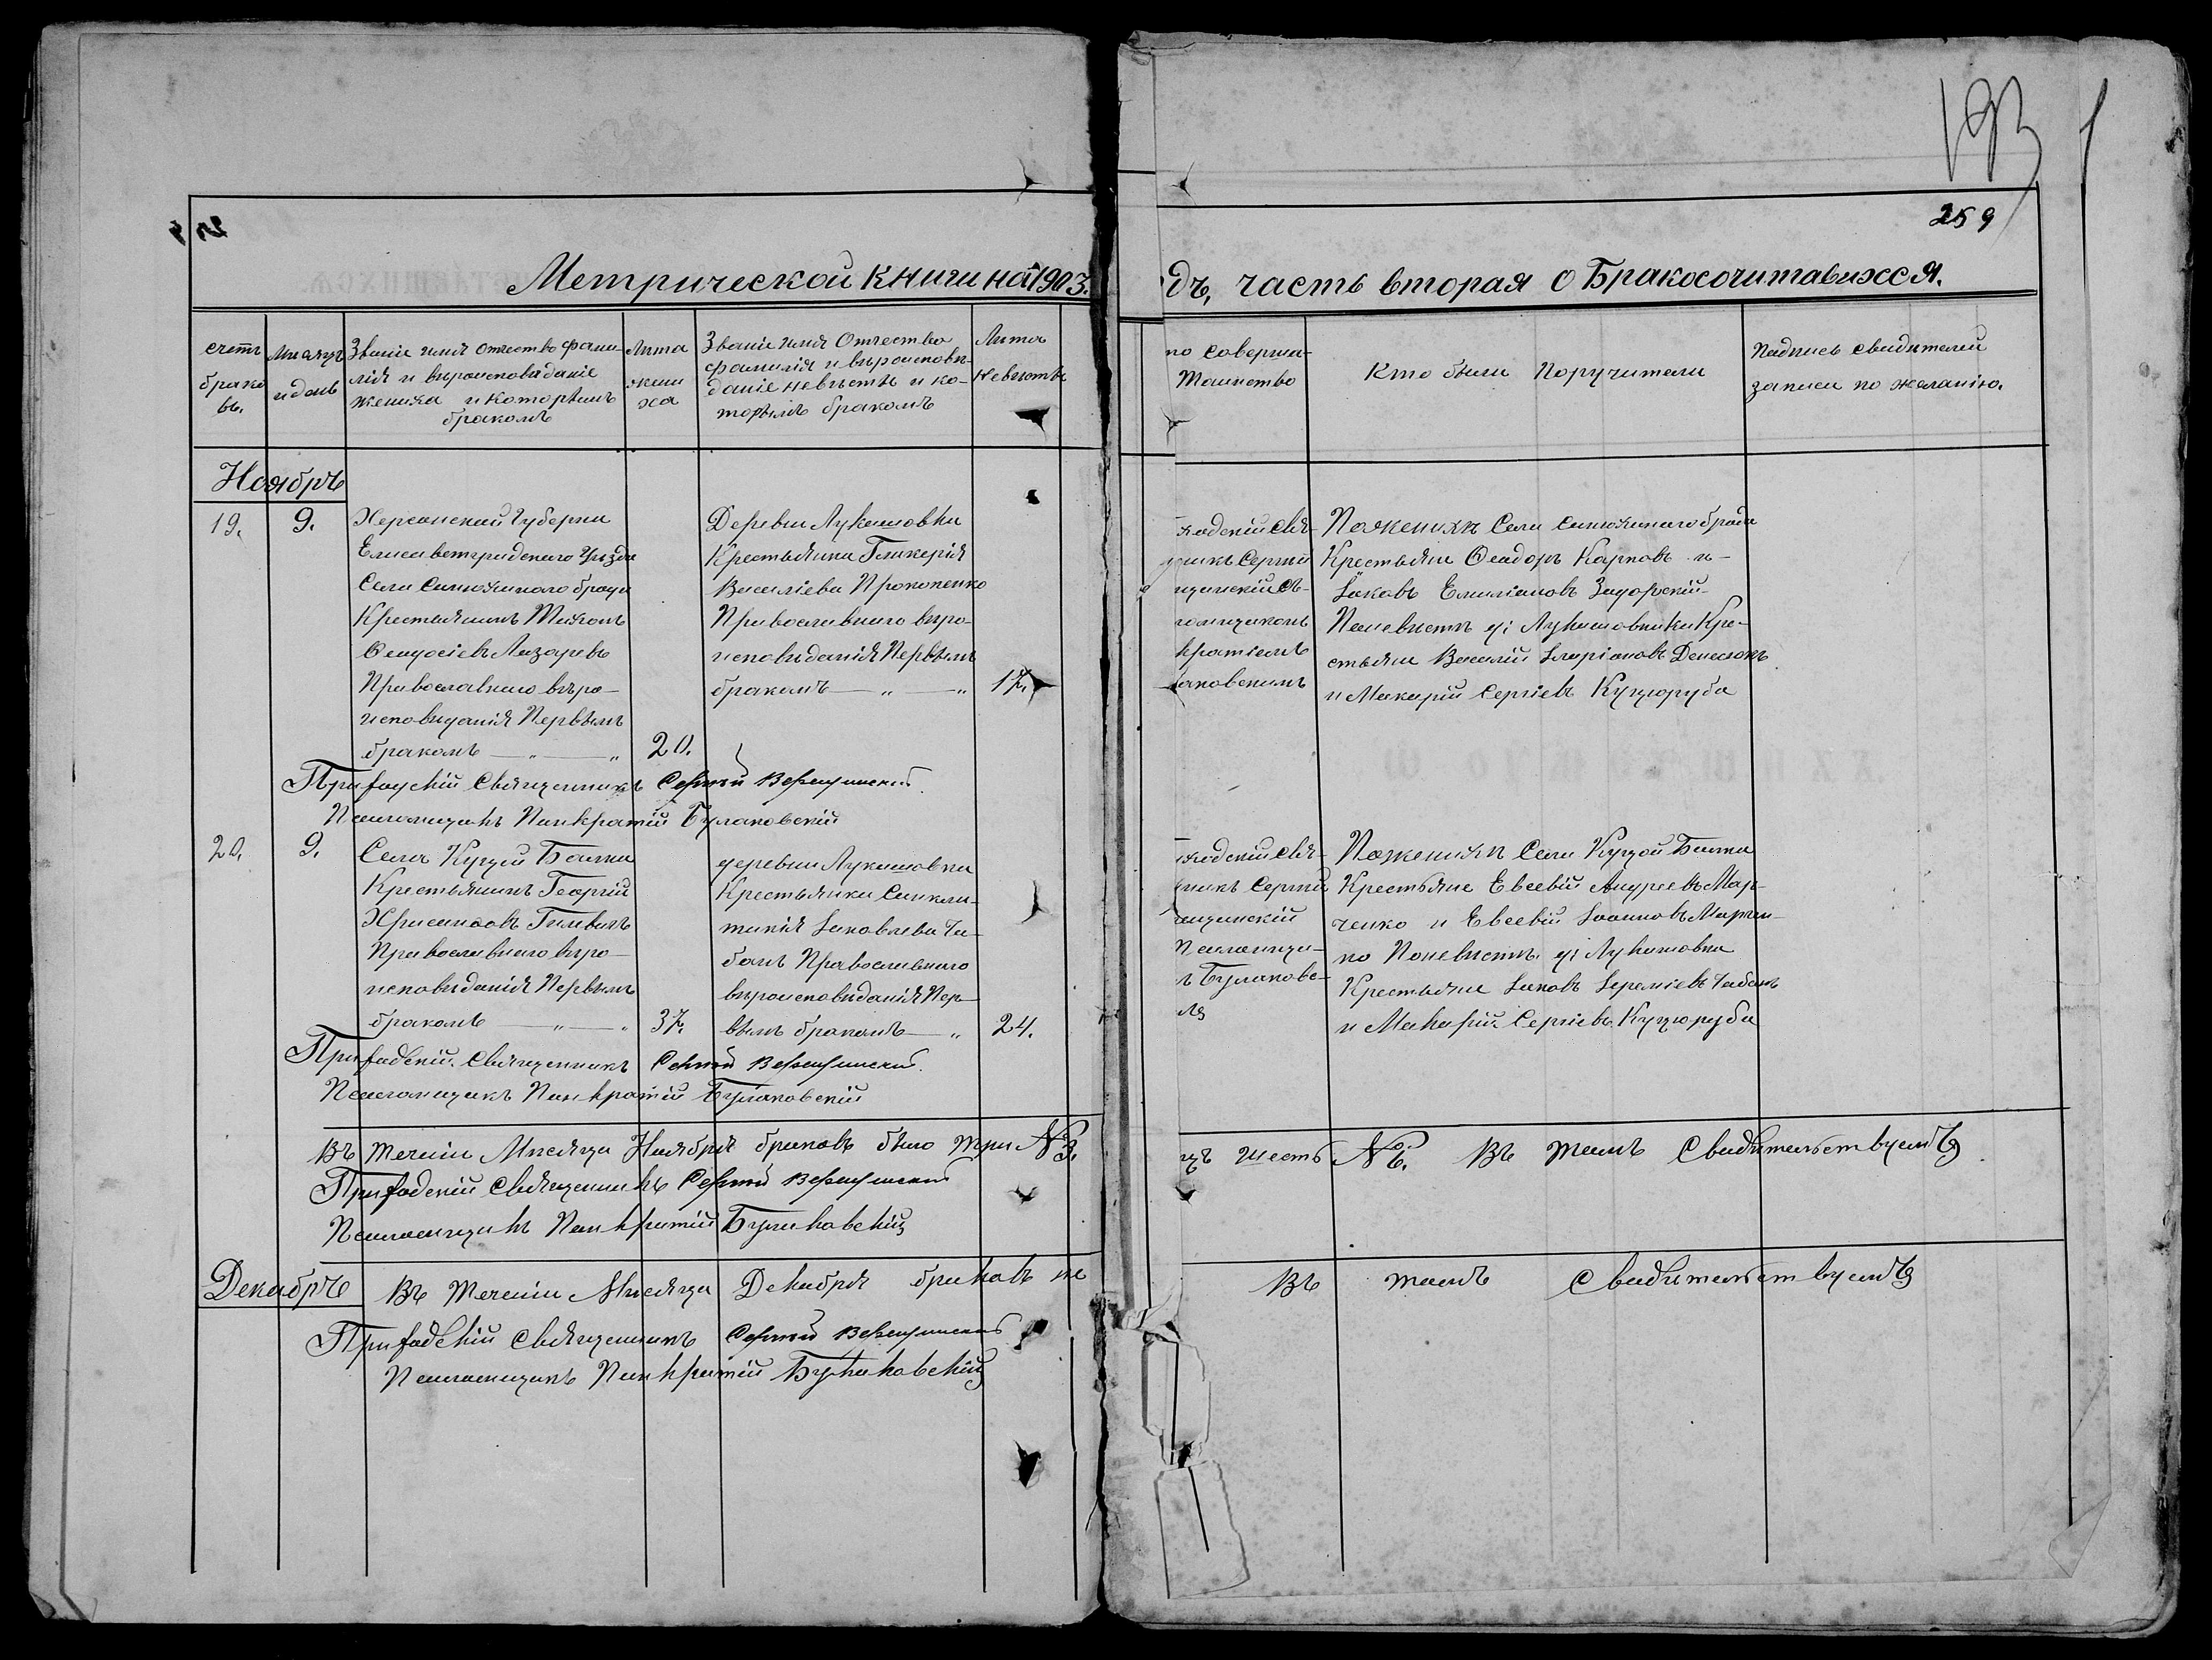 193
259
Метрической книги на 1903.
дъ, часть вторая о Бракосочитавихся.
счетъ
брако
въ.
Мѣсяцъ
и день
Званіе имя отчество фами-
лія и вѣроисповѣданіе
жениха и которымъ
бракомъ
Лѣта
жени
ха
Званіе имя Отчество
фамилія и вѣроисповѣ-
даніе невѣсты и ко-
торымъ бракомъ
Лѣта
Невѣсты
то соверша-
Таинство
Кто были Поручители
Подпись свидѣтелей
записи по желанію.
Ноябрь
19.
9.
Херсонской Губерніи
Елисаветградскаго Уѣзда
Села Синюхинаго брода
Крестьянинъ Тихонъ
Лазаревъ
Православнаго вѣро-
исповѣданія Первымъ
бракомъ — „ — „
20.
Деревни Лукашовки
Крестьянка Гликерія
Василіева Прокопенко
Православнаго вѣро-
исповѣданія Первымъ
бракомъ — „ — „
17.
ходскій свя-
никъ Сергій
щинскій съ
ломщикомъ
кратіемъ
аковскимъ
По женихѣ Села Синюхинаго брода
Крестьяне Ѳеодоръ Карповъ и-
Іаковъ Емиліановъ Задорскій-
По невѣстѣ д: Лукашовки Кре-
стьяне Василій Иларіоновъ Денисюкъ
и Макарій Сергіевъ Куцюруба
Приходскій Священникъ Сергій Верещинскій.
Псаломщикъ Панкратій Булаковскій
20.
9.
Села Куцой Балки
Крестьянинъ Георгій
Православнаго вѣро-
исповѣданія Первымъ
бракомъ — „ — „
37.
деревни Лукашовки
Крестьянка Синкли-
тикія Іаковлева Ча-
банъ Православнаго
вѣроисповѣданія Пер-
вымъ бракомъ — „
24.
ходскій свя-
никъ Сергій
щинскій
Псаломщи-
ъ Булаковс-
ій
По женихѣ Села Куцой Балки
Крестьяне Евсевій Андреевъ Мар-
ченко и Евсевій Іоанновъ Марчен-
ко По невѣстѣ д: Лукашовки
Крестьяне Іаковъ Іереміевъ Чабанъ
и Макарій Сергіевъ Куцюруба
Приходскій Священникъ Сергій Верещинскій.
Псаломщикъ Панкратій Булаковскій
Въ теченіи Мѣсяца Ноября браковъ было три № 3.
цъ шесть № 6. Въ томъ Свидѣтельствуемъ
Приходскій Священникъ Сергій Верещинскій
Псаломщикъ Панкратій Булаковскій
Декабрь
Въ теченіи Мѣсяца Декабря браковъ не
Въ томъ Свидѣтельствуемъ
Приходскій Священникъ Сергій Верещинскій
Псаломщикъ Панкратій Булаковскій